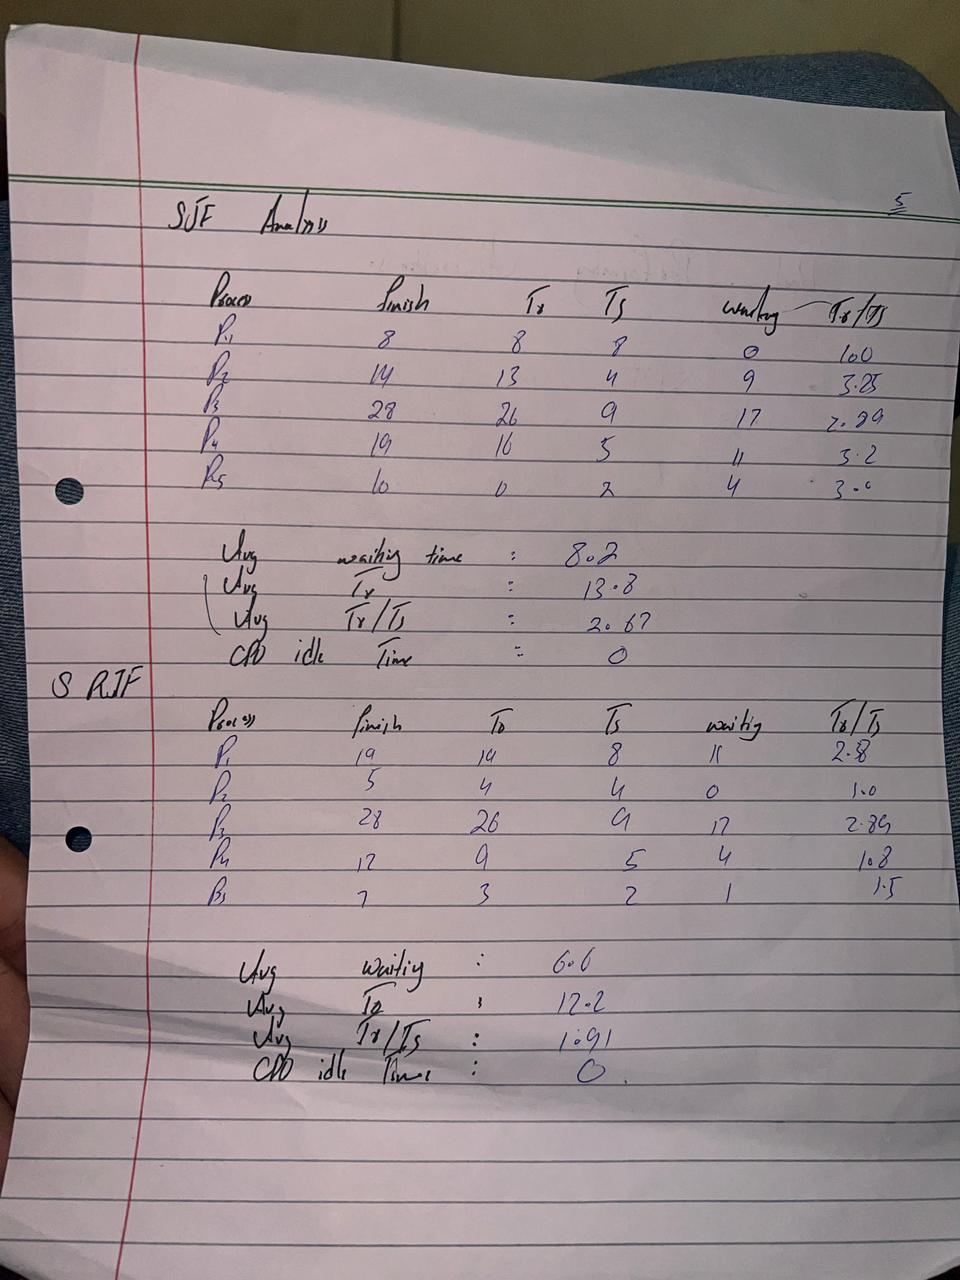 5
SJF Analysis
Process finish Tr Ts waiting Tr/Ts
P1 8 8 8 0 1.00
P2 14 13 4 9 3.25
P3 28 26 9 17 2.89
P4 19 16 5 11 3.2
P5 10 2 4
Avg waiting time : 8.2
Avg Tr : 13.8
Avg Tr/Ts : 2.67
CPU idle Time = 0
SRJF
Process finish Tr Ts waitig Tr/Ts
P1 19 19 8 11 2.8
P2 5 4 4 0 1.0
P3 28 26 9 17 2.89
P4 12 9 5 4 1.8
P5 7 3 2 1 1.5
Avg waitig : 6.6
Avg Tr : 12.2
Avg Tr/Ts : 1.91
CPU idle Time : 0